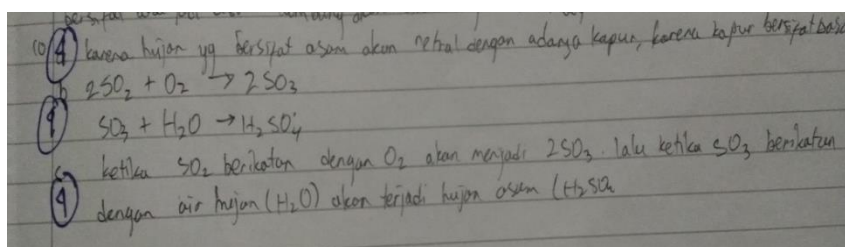 bersifat
10) a 4 karena hujan yg bersifat asam akan netral dengan adanya kapur, karena kapur bersifat basa
b 2SO₂ + O₂ → 2SO₃
4 SO₃ + H₂O → H₂SO₄
c. ketika SO₂ berikatan dengan O₂ akan menjadi 2SO₃. lalu ketika SO₃ berikatan
4 dengan air hujan (H₂O) akan terjadi hujan asam (H₂SO₄